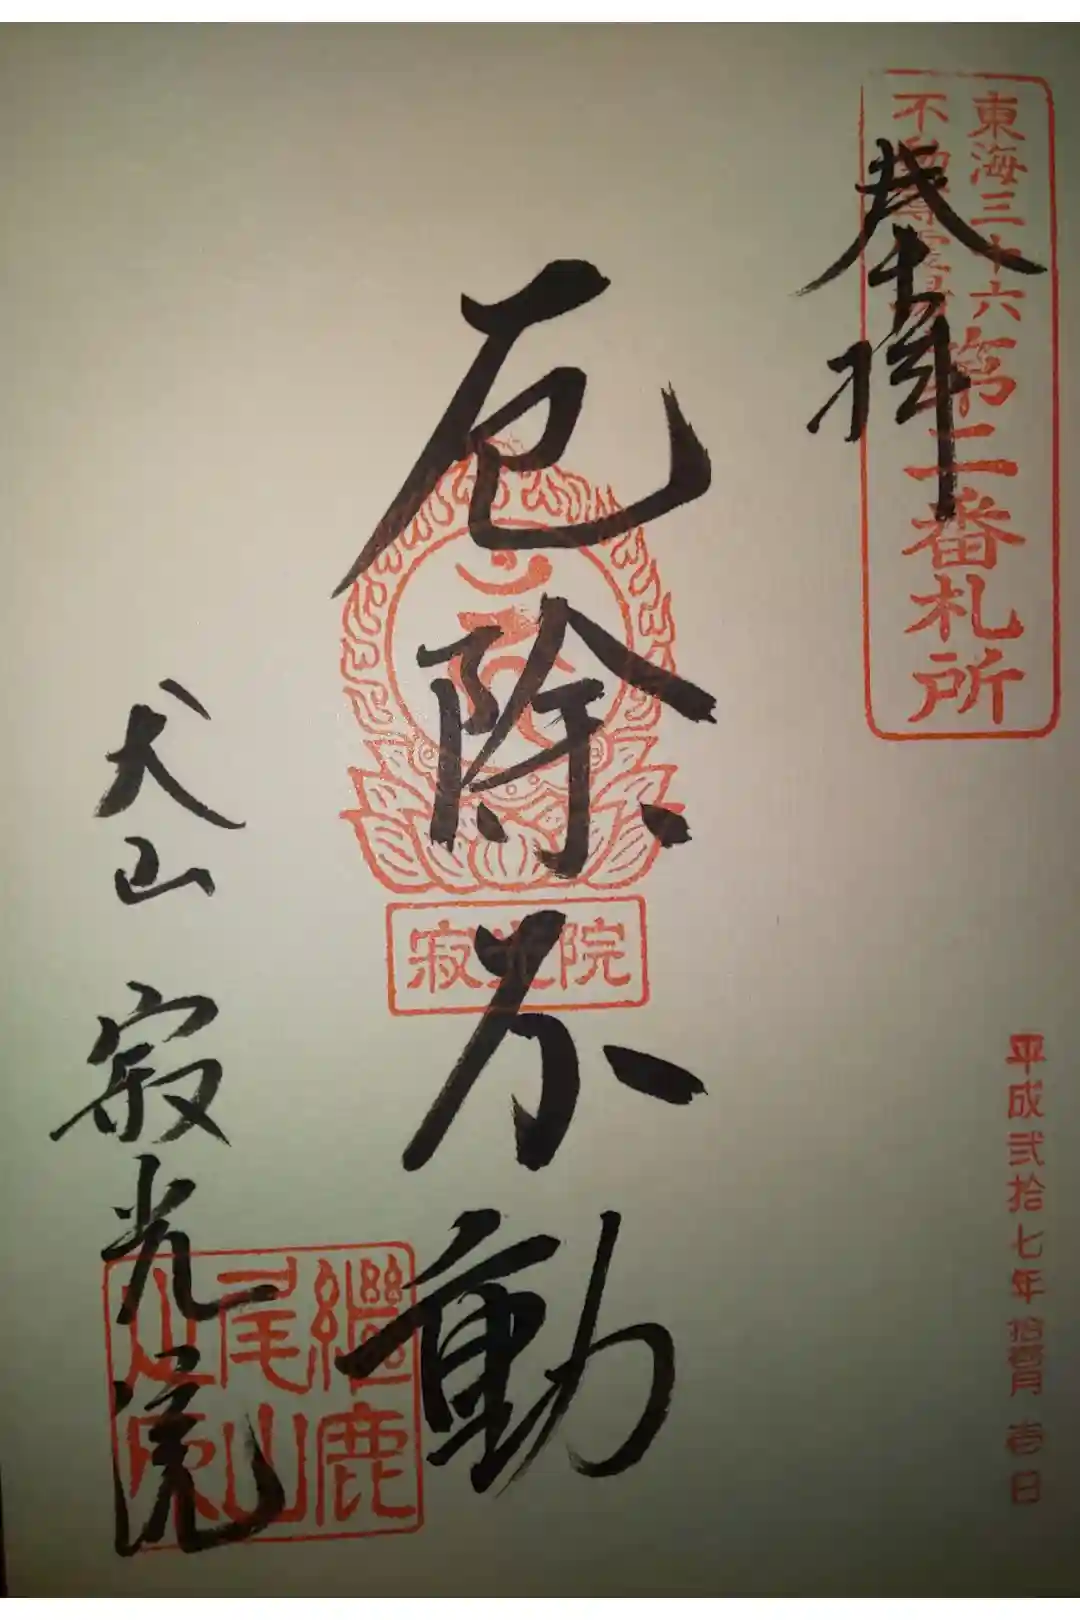 東海三十六
不動尊霊場
第二番札所
奉拝
平成弐拾七年拾壱月壱日
厄除不動
寂光院
犬山 寂光院
継鹿
尾山